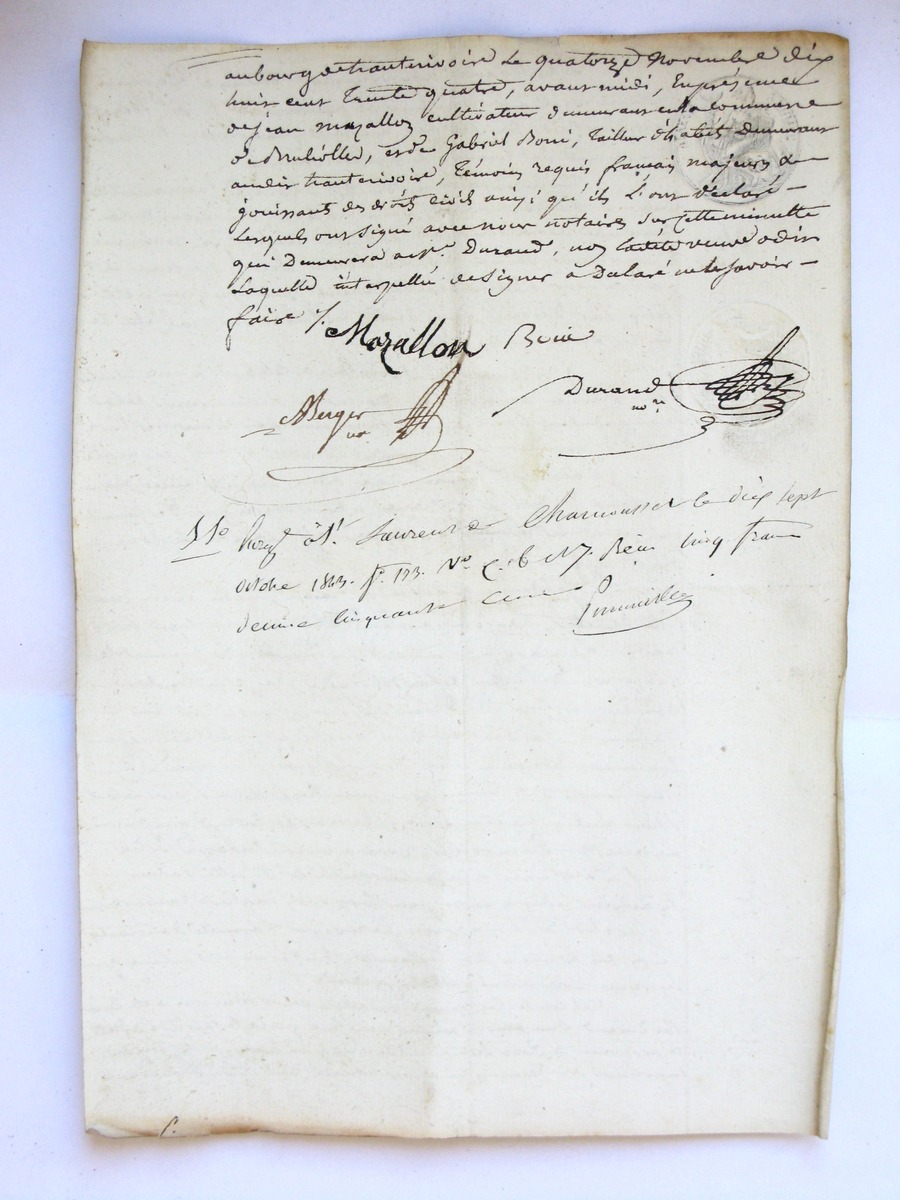 au bourg de hauterivoire Le quatorze Novembre dix
huit cent Trente quatre, avant midi, En présence
de jean mazallon cultivateur demeurant en la commune
de Brullolles, et de Gabriel Boui, Tailleur d'habits Demeurant
audit hauterivoire, Témoins requis français majeurs
jouissants des droits civils ainsi qu'ils l'ont déclaré —
Lesquels ont signé avec nous notaires sur cette minutte
qui Demeurera a Durand, non ladite veuve odin
Laquelle interpellée de signer a Déclaré ne le savoir —
faire /.
Mazallon Boui
Durand
nore
Berger
no
à St Laurent de Chamousset le dix sept
octobre 1843. fo 123. Vo c. 6 Reçu cinq francs
cinquante cent